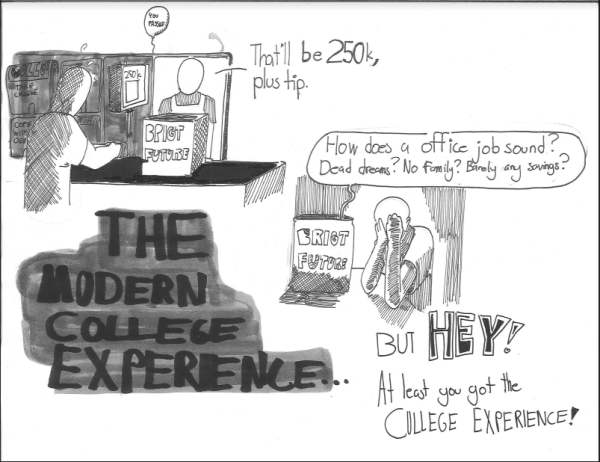 YOU
PASSED
That'll be 250k,
plus tip.
COLLEGE
250k
BRIGT
FUTURE
How does a office job sound?
Dead dreams? No family? Barely any savings?
BRIGT
FUTURE
THE
MODERN
COLLEGE
EXPERIENCE...
BUT HEY!
At least you got the
COLLEGE EXPERIENCE!